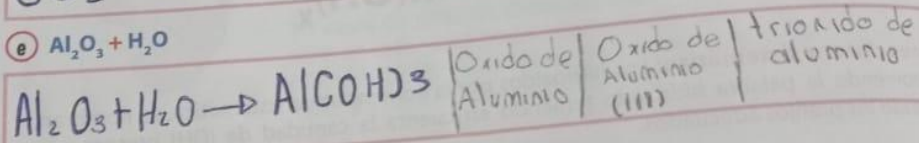 e Al₂O₃ + H₂O
Al₂O₃ + H₂O → Al(OH)3 | Oxido de Aluminio | Oxido de Aluminio (III) | trioxido de aluminio